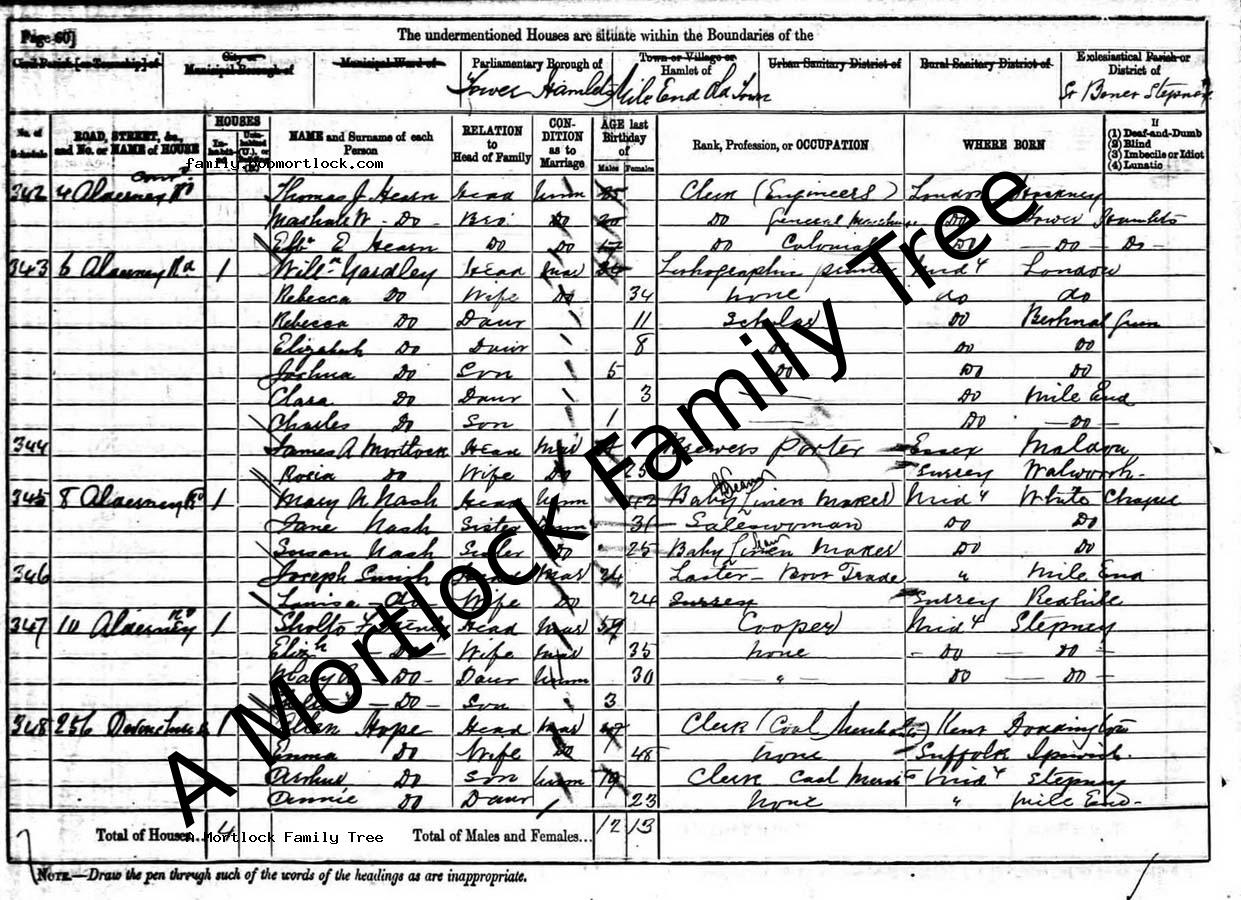 Page 60]
The undermentioned Houses are situate within the Boundaries of the
Civil Parish [or Township] of
City or Municipal Borough of
Municipal Ward of
Parliamentary Borough of
Tower Hamlets
Town or Village or Hamlet of
Mile End Old Town
Urban Sanitary District of
Rural Sanitary District of
Ecclesiastical Parish or District of
Stepney
No. of Schedule
ROAD, STREET, &c., and No. or NAME of HOUSE
HOUSES
NAME and Surname of each Person
RELATION to Head of Family
CONDITION as to Marriage
AGE last Birthday of
Males
Females
Rank, Profession, or OCCUPATION
WHERE BORN
If
(1) Deaf-and-Dumb
(2) Blind
(3) Imbecile or Idiot
(4) Lunatic
family.bobmortlock.com
342 4 Alderney Rd Thomas J. Hearn Head Unm Clerk (Engineers) London Hackney
Do Bro: Do Do General Do Tower Hamlets
E Hearn Do Do Do Colonial Do Do Do
343 6 Alderney Rd 1 Willm Yardley Head Mar Lithographic printer Midx London
Rebecca Do Wife Do 34 none do do
Rebecca Do Daur 11 Scholar Do Bethnal Green
Elizabeth Do Daur 8 Do Do
Joshua Do Son 5 Do Do Do
Clara Do Daur 3 Do Mile End
Charles Do Son 1 Do Do
344 James A Mortlock Head Mar Brewers Porter Essex Maldon
Rosia do Wife Do 25 Surrey Walworth
345 8 Alderney Rd 1 Mary A Nash Head Unm 42 Baby Linen Maker Midx White Chapel
Jane Nash Sister Unm 31 Saleswoman Do Do
Susan Nash Sister Do 25 Baby Linen Maker Do Do
346 Joseph Smith Head Mar 24 Laster - Boot Trade " Mile End
Louisa do Wife Do 24 Surrey Surrey Redhill
347 10 Alderney Rd 1 Sholto Head Mar 59 Cooper Midx Stepney
Elizh Do Wife Mar 35 none Do Do
Mary Do Daur Unm 30 " Do Do
Do Son 3
348 256 1 Hope Head Mar Clerk (Coal Merchant) Kent Doddington
Emma Do Wife Do 48 none Suffolk Ipswich
Arthur Do Son Unm 19 Clerk Coal Mercht Midx Stepney
Annie Do Daur 23 none " Mile End
Total of Houses... 4
A Mortlock Family Tree
Total of Males and Females... 12 13
NOTE.—Draw the pen through such of the words of the headings as are inappropriate.
A Mortlock Family Tree